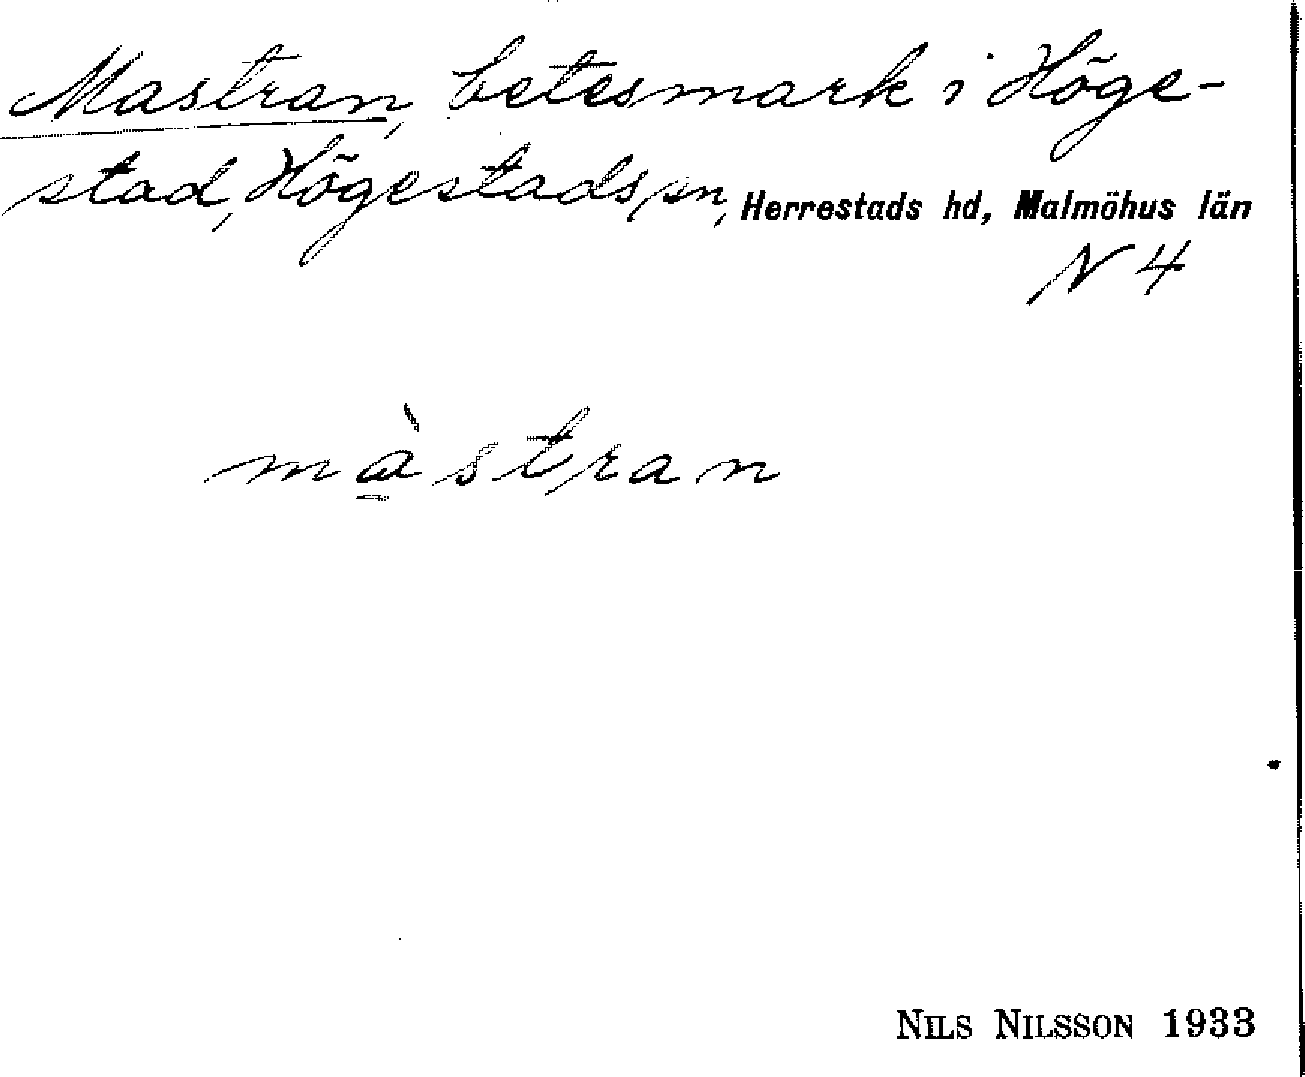 Mastran, betesmark i Höge-
stad, Högestads sn, Herrestads hd, Malmöhus län
N 4
màstran
NILS NILSSON 1933